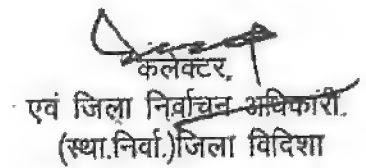 कलेक्टर,
एवं जिला निर्वाचन अधिकारी.
(स्था.निर्वा.)जिला विदिशा